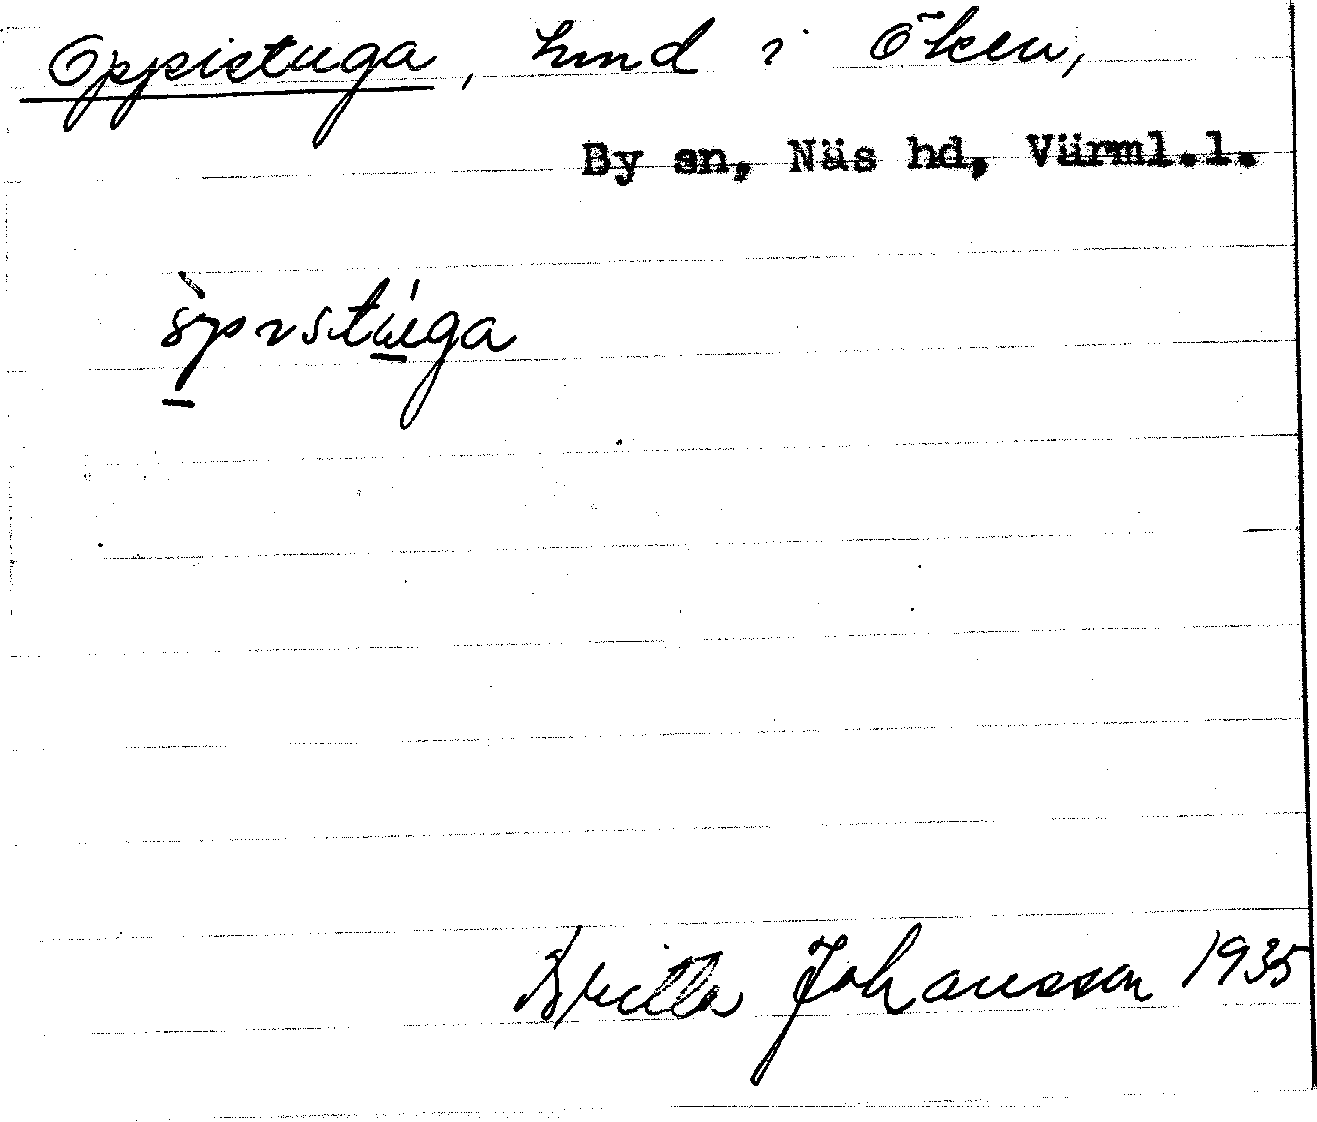 Oppistuga, hmd i Öken,
By sn, Näs hd, Värml.l.
Britta Johansson 1935